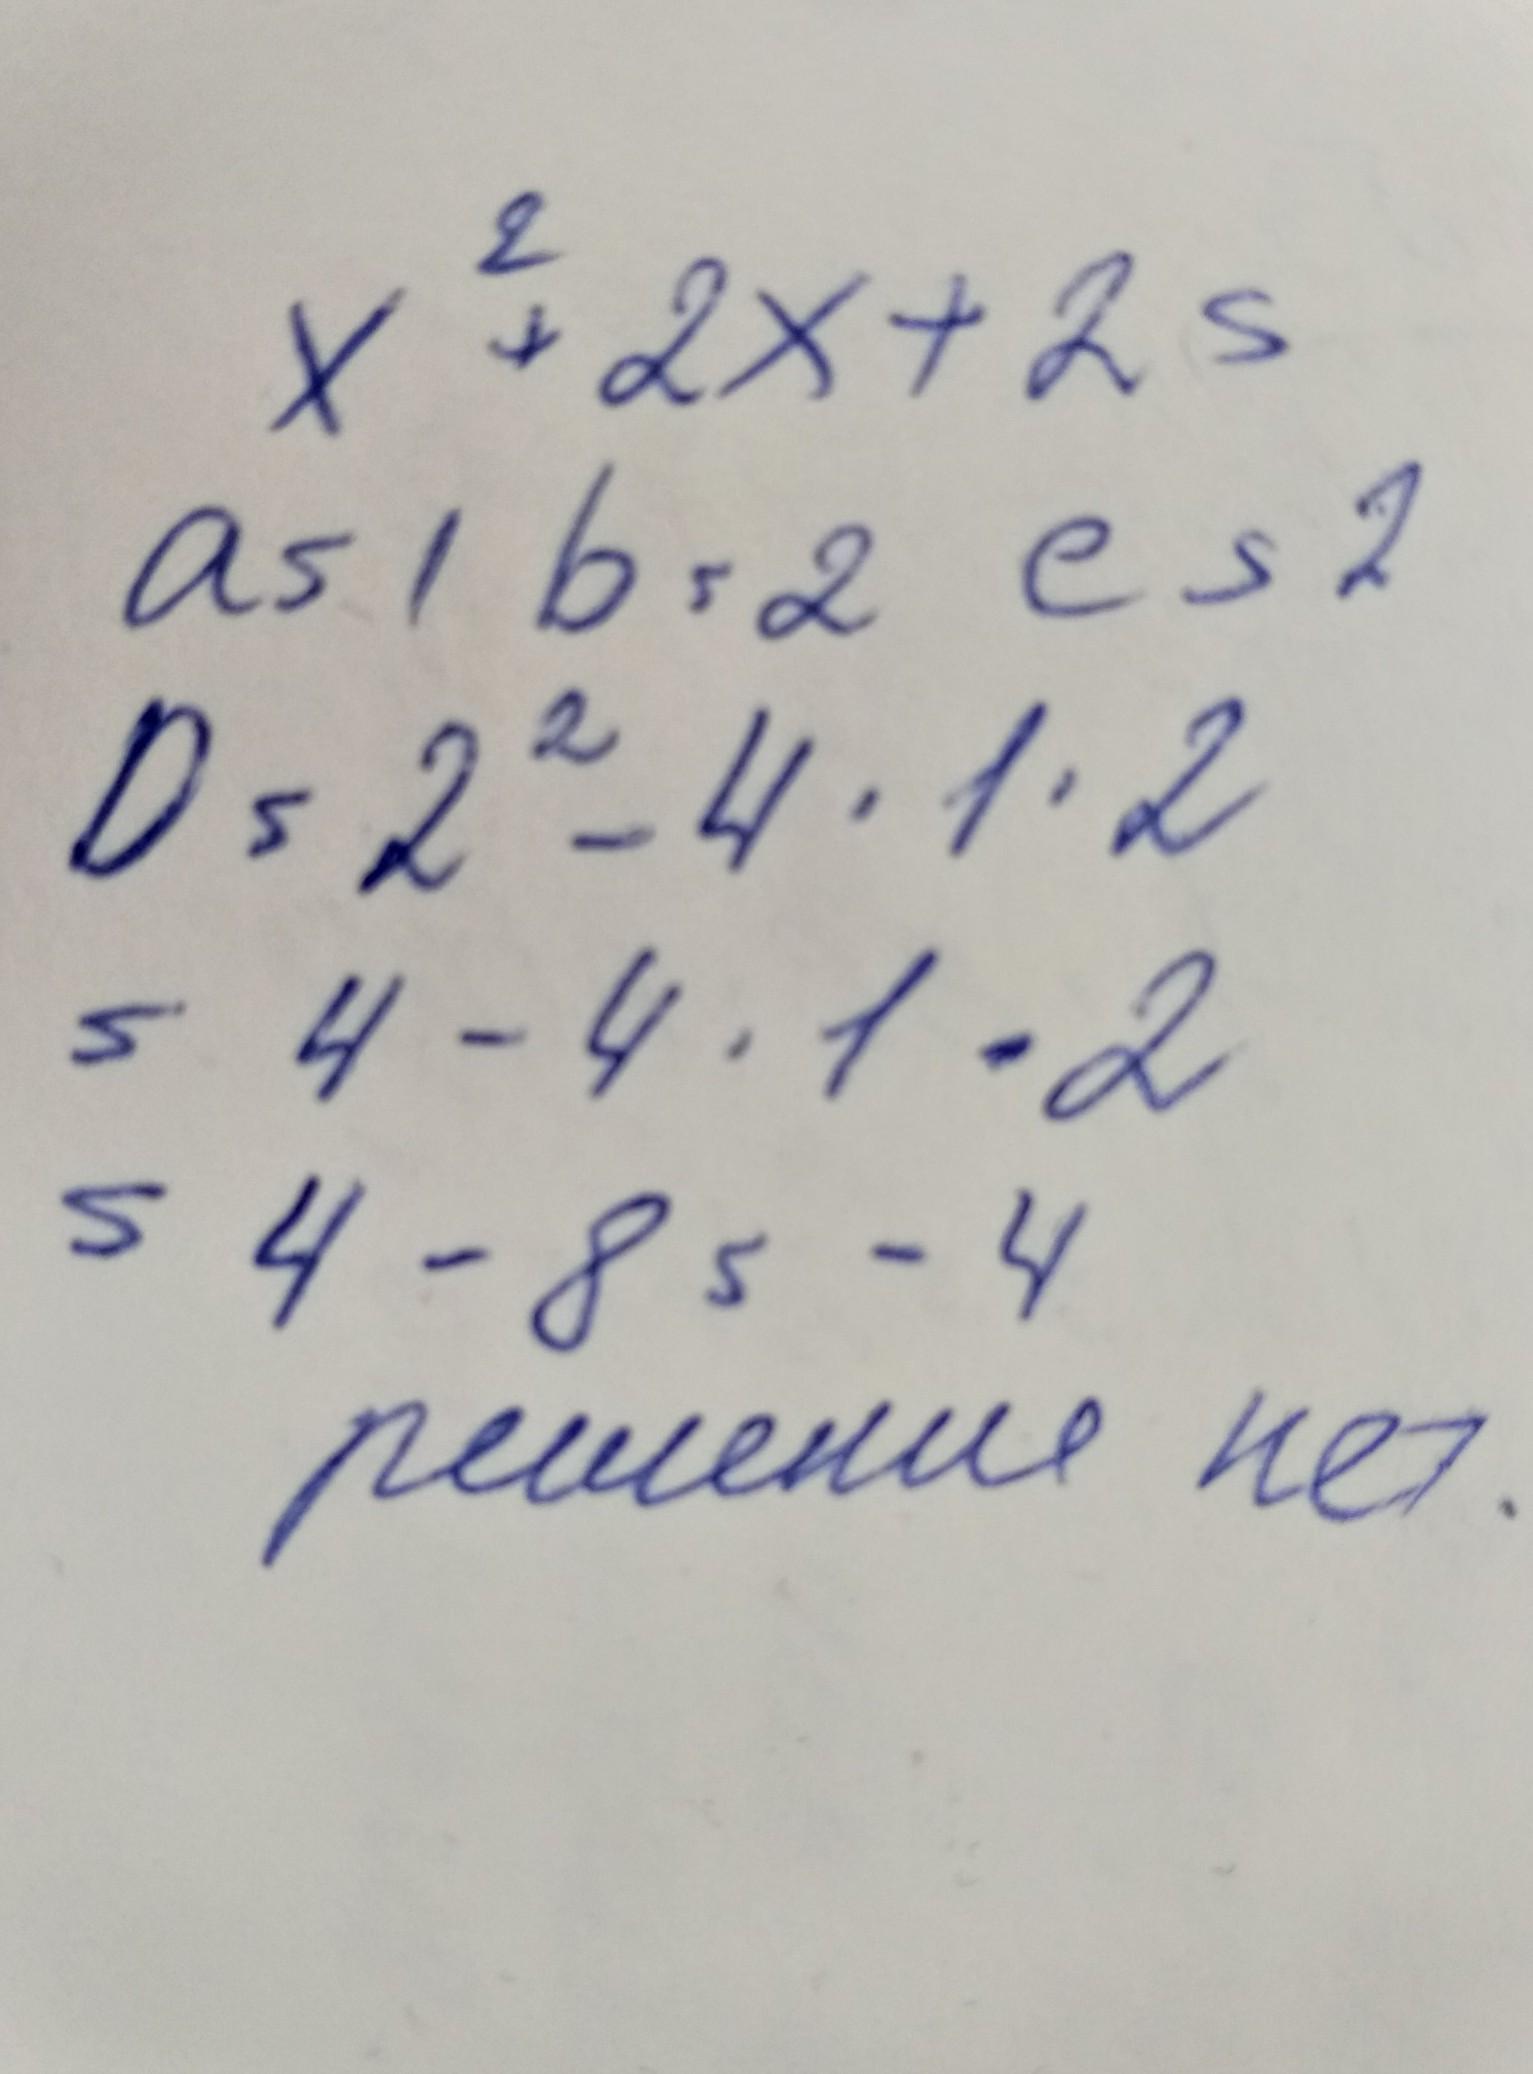 x² + 2x + 2 =
a = 1 b = 2 c = 2
D = 2² - 4 · 1 · 2
= 4 - 4 · 1 · 2
= 4 - 8 = - 4
решение нет.